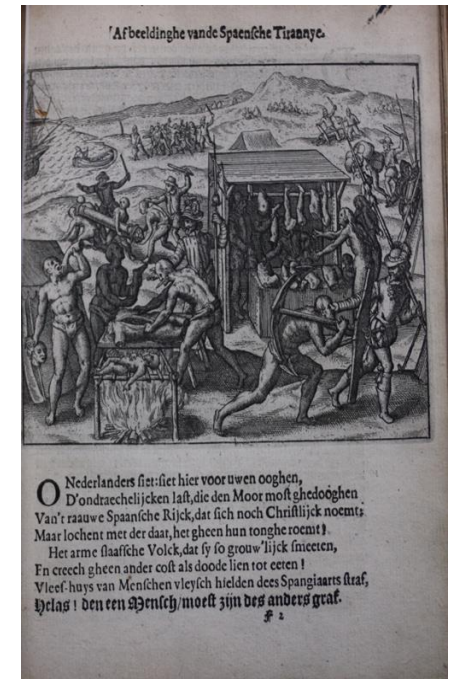 Afbeeldinghe vande Spaensche Tirannye.
O Nederlanders siet: siet hier voor uwen ooghen,
D'ondraechelijcken last, die den Moor most ghedooghen
Van't raauwe Spaansche Rijck, dat sich noch Christlijck noemt;
Maar lochent met der daat, het gheen hun tonghe roemt!
Het arme slaafsche Volck, dat sy so grouw'lijck smeeten,
En creech gheen ander cost als doode lien tot eeten!
Vlees-huys van Menschen vleysch hielden dees Spangiaarts straf,
Helas! den een Mensch/moest zijn des anders graf.
2